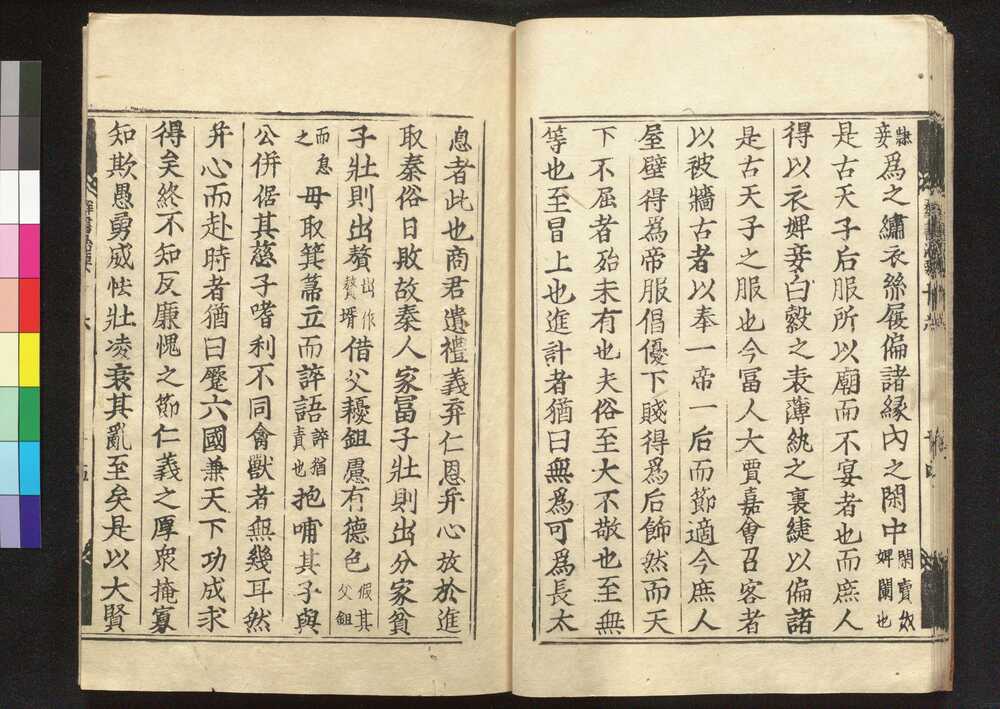 隸妾爲之繡衣絲履偏諸緣內之閑中閑賣奴婢闌也
是古天子后服所以廟而不宴者也而庶人
得以衣婢妾白縠之表薄紈之裏緁以偏諸
是古天子之服也今冨人大賈嘉會召客者
以被牆古者以奉一帝一后而節適今庶人
屋壁得爲帝服倡優下賤得爲后飾然而天
下不屈者殆未有也夫俗至大不敬也至無
等也至冒上也進計者猶曰無爲可爲長太
息者此也商君遺禮義弃仁恩并心放於進
取秦俗日敗故秦人家冨子壯則出分家貧
子壯則出贅出作贅壻借父耰鉏慮有德色假其父鉏
而息之母取箕箒立而誶語誶猶責也抱哺其子與
公併倨其慈子嗜利不同禽獸者無幾耳然
并心而赴時者猶曰蹷六國兼天下功成求
得矣終不知反廉愧之節仁義之厚衆掩寡
知欺愚勇威怯壯凌衰其亂至矣是以大賢